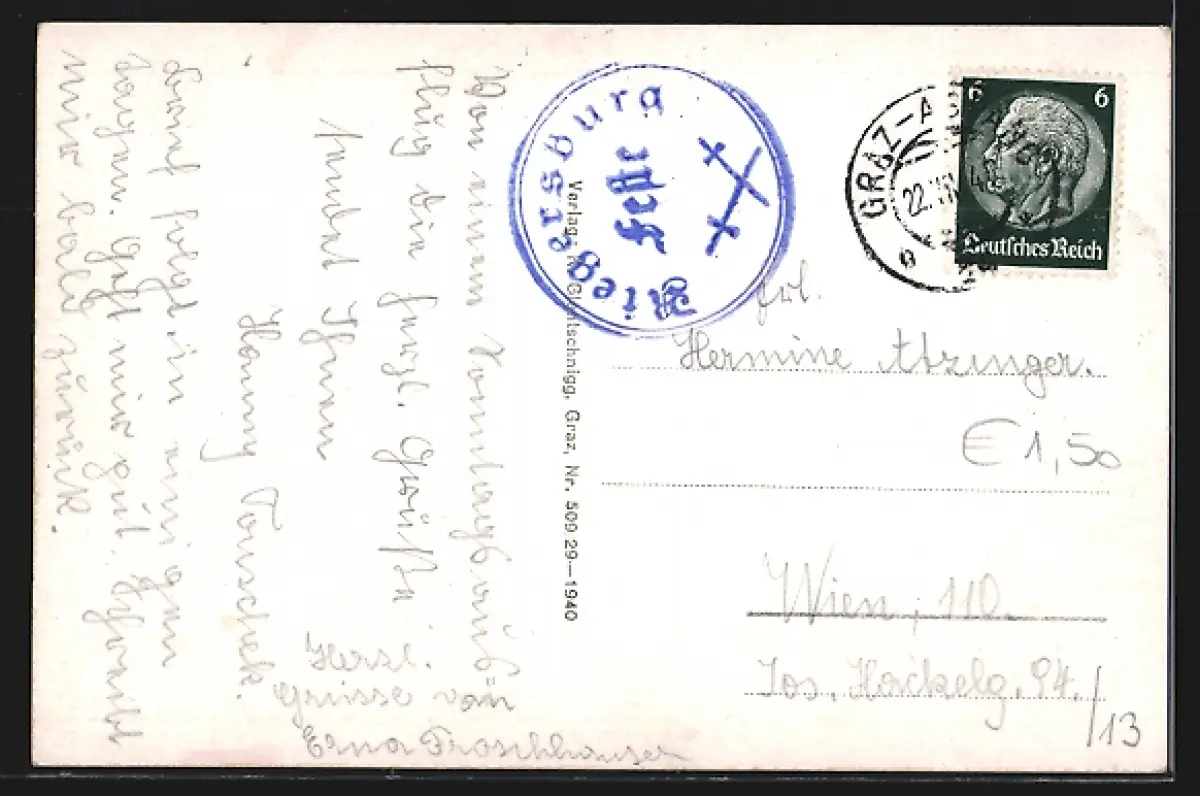 Von einem Sonntagsaus
flug die herzl. Grüße
sendet Ihnen
Hanny Tauschek.
Brief folgt in einigen
Tagen. Geht mir gut. Schreibt
mir bald zurück.
Herzl.
Grüsse von
Erna Froschhauser
Riegersburg
Feste
Verlag: N. Gl tschnigg, Graz, Nr. 509 29—1940
GRAZ-A
22.
6 6
Deutsches Reich
Frl.
Hermine Atzinger.
€ 1,50
Wien, 110.
Jos. Hackelg. 94./
/13